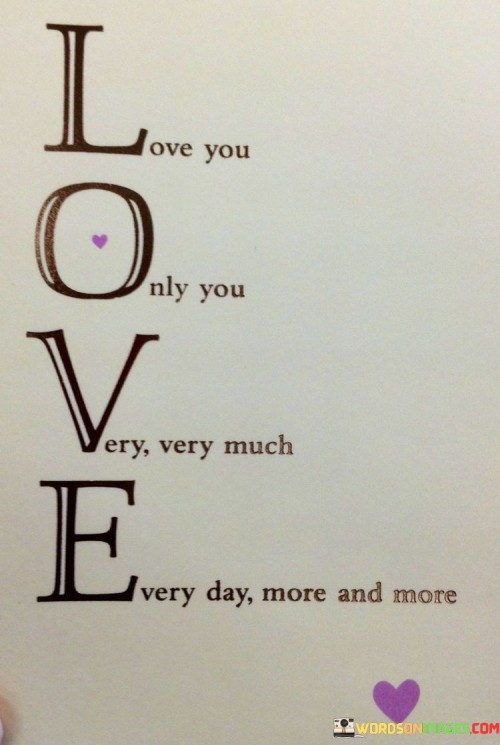 Love you
Only you
Very, very much
Every day, more and more
WORDSONIMAGES.COM